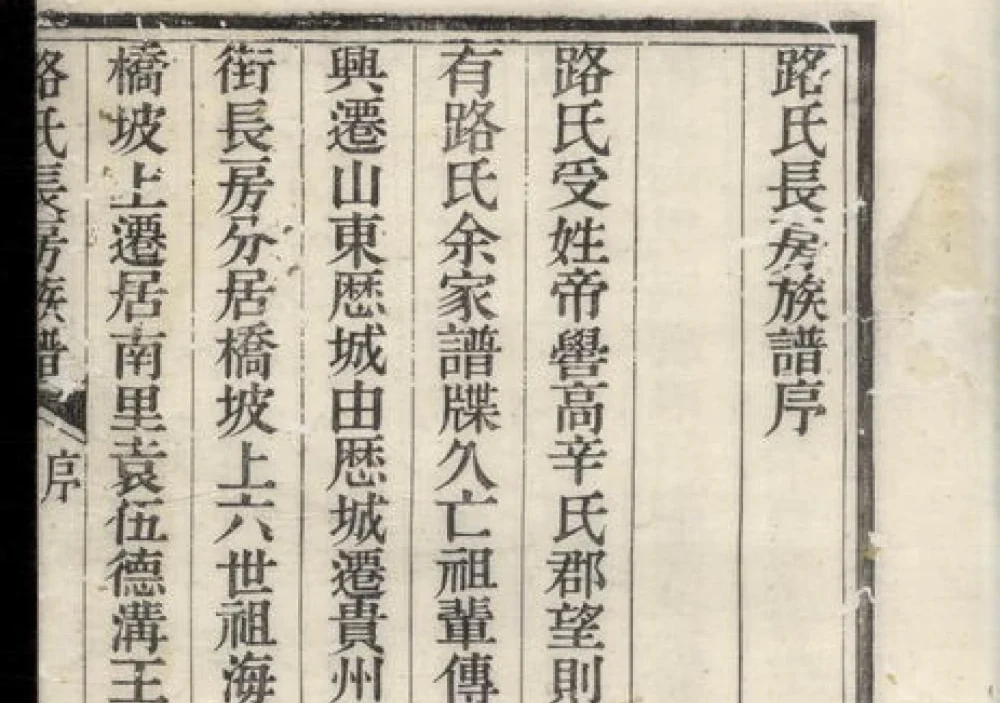 路氏長房族譜序
路氏受姓帝嚳高辛氏郡望則
有路氏余家譜牒久亡祖輩傳
興遷山東歷城由歷城遷貴州
街長房分居橋坡上六世祖海
橋坡上遷居南里袁伍德溝王
路氏長房族譜
序